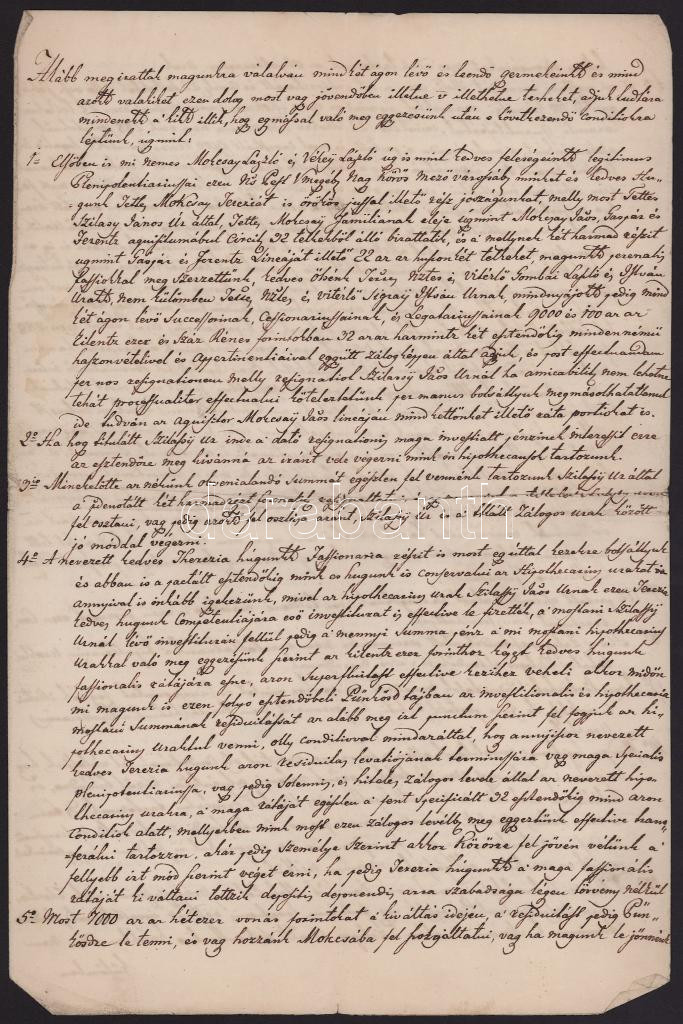 Alább megirattak magunkra válalván mind két ágon lévő és leendő germekeinkk és mind
azokk valakiket ezen dolog most vag jövendőben illetne v illethetne terheket, adjuk tudtára
mindenekk a' kikk illik, hog egymással való meg eggyezésünk után e következendő Conditiokra
léptünk, úgmint:
1= Elsőben is mi nemes Mokcsay László és Vécsey László úg is mint kedves feleségeinkk legitimus
Plenipotentiariussai ezen Ns Pest Vmegyéb Nag Kőrös Mező városbúl minket és kedves Hu-
gunk Tette Mokcsay Therezia't is örökös jussal illető rész jószágunkat, melly most Tettes
Szilasy János Úr által, Tette, Mokcsay familiának eleje ugmint Mokcsay János, Gáspár és
Ferentz 32 telkekbűl álló birattatik, és a mellynek két harmad részit
ugmint Gáspár és Ferentz Lineáját illető 22 az az huszonkét telkeket, magunkk
fassiokkal meg Szerzettünk, kedves Ötsénk Tettes Nztes és vitézlő Sombati László és István
Urakk, nem külömben Tettes, Nztes, és vitézlő István Urnak, mindnyájokk pedig mind
két ágon lévő Successorinak, Cessionariussainak, és Legatariussainak 9000 és 100 az az
kilentz ezer és száz Rénes forintokban 32 az az harmintz két esztendőkig mindennémű
haszonvételivel és appertinentiaival eggyütt zálogképpen által adjuk, és post effectuandam
per nos resignationem melly resignatiot Szilassy János Urnál ha amicabiliter nem lehetne
tehát processualiter effectualni köteleztetünk per manus bocsáttyuk megmásolhatatlanul
ide tudván az aquisitor Mokcsay János lineáján mindkettőnket illető ráta portiokat is.
2o Ha hog titulátt Szilassy Ur inde a dato resignationis maga investiált pénzinek interessit erre
az esztendőre meg kivánná az iránt vele végezni mink ön hypothecansok tartozunk.
3io Minekelőtte az nékünk obveniálandó Summát egészlen fel vennénk tartozunk Szilassy Ur által
a denotált két harmadrészt
fel osztani, vag pedig azokk fel osztása aránt Szilassy Ur és a titulált Zálogos urak között
jó móddal végezni.
4o A nevezett kedves Therezia húgunkk Fassionaria részit is most eg úttal kezekre botsáttyuk
és abban is a pactált esztendőkig mink eő hugunk is conservalni az Hypothecarius urakat
annyival is inkább igérkezünk, mivel az hypothecarius urak Szilassy János Urnak ezen Terezia
kedves hugunk Competentiájára eső investituráit is effective le fizették, a' mostani Szilassy
Urnál lévő investiturán fellűl pedig a mennyi Summa pénz a' mi mostani hypothecarius
Urakkal való meg eggyezésünk szerint az kilentz ezer forinthoz képest kedves húgunk
fassionalis rátájára esne, azon Superfluitást effective kezihez veheti akkor midőn
mi magunk is ezen folyó esztendőbeli Pünkösd tájban az investitionalis és hypothecaria
mostani Summának residuitássát az alább meg irt punctum szerint fel fogjuk az hi-
pothecarius Uraktul venni, olly conditioval mindazáltal, hog annyiszor nevezett
kedves Terezia hugunk azon residuitas levatiójának terminussára vag maga specialis
plenipotentiariussa, vag pedig Solemnis, és hiteles zálogos levele által az nevezett hipo-
thecarius urakra, a maga rátáját egészlen a fent specificált 32 esztendőkig mind azon
Conditiok alatt, mellyekben mink most ezen zálogos levélbe, meg eggyeztünk effective trans-
ferálni tartozzon, akár pedig személye szerint akkor Kőrösre fel jövén velünk a'
fellyebb irt mód szerint véget érni, ha pedig Terezia húgunkk a maga fassionális
rátáját ki váltani tettzik depositis deponendis, arra szabadsága légen törvény nélkűl
5o Most 7000 az az hétezer vonás forintokat a kiváltás idején, a' residuitást pedig Pün-
kösdre le tenni, és vag hozzánk Mokcsába fel szolgáltatni, vag ha magunk le jönnénk
darabanth